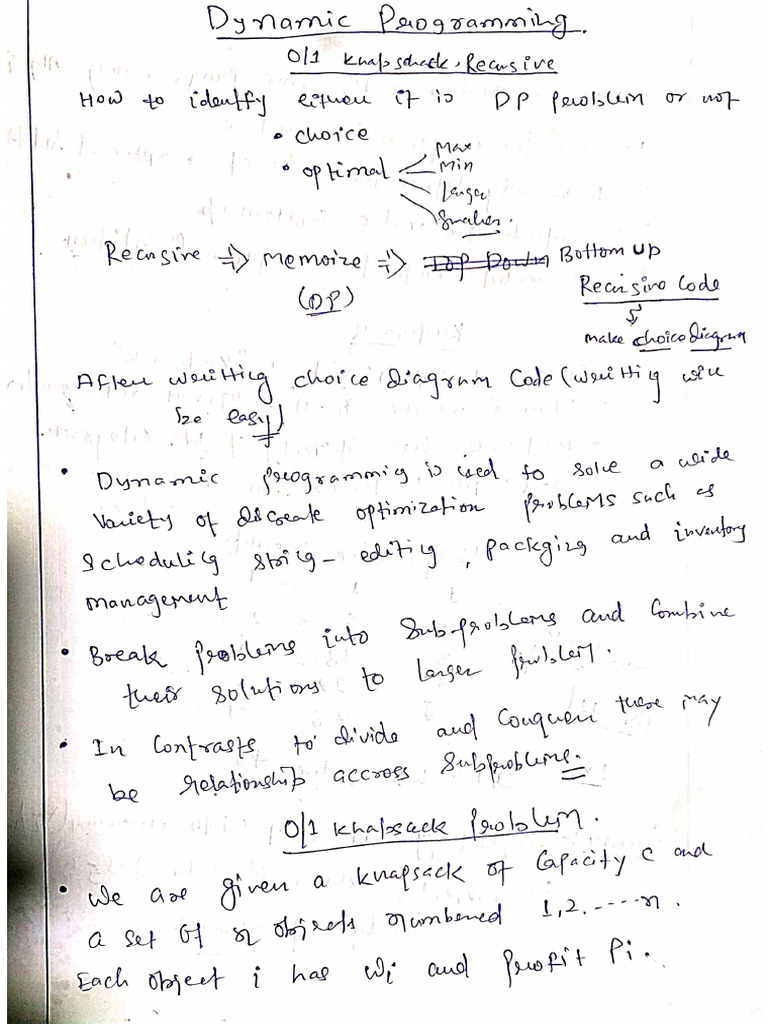 Dynamic Programming.
0/1 Knapsdack, Recursive
How to identfy either it is DP problem or not
• choice
• optimal
Max
Min
Larger
Smaller.
Recursive => Memoize => Top Down Bottom up
(DP)
Recursive Code
make choice diagram
After writting choice diagram Code (writting will
be easy)
• Dynamic programmig is used to solve a wide
variety of discreate optimization problems such as
Scheduling string - editing, packging and inventory
management
• Break problems into subproblems and combine
their solutions to larger problem.
• In Contrasts to divide and Conquer there may
be relationship accross subproblems.
0/1 Knapsack problem.
• We are given a knapsack of Capacity c and
a set of n objects numbered 1,2.----n.
Each object i has wi and profit Pi.